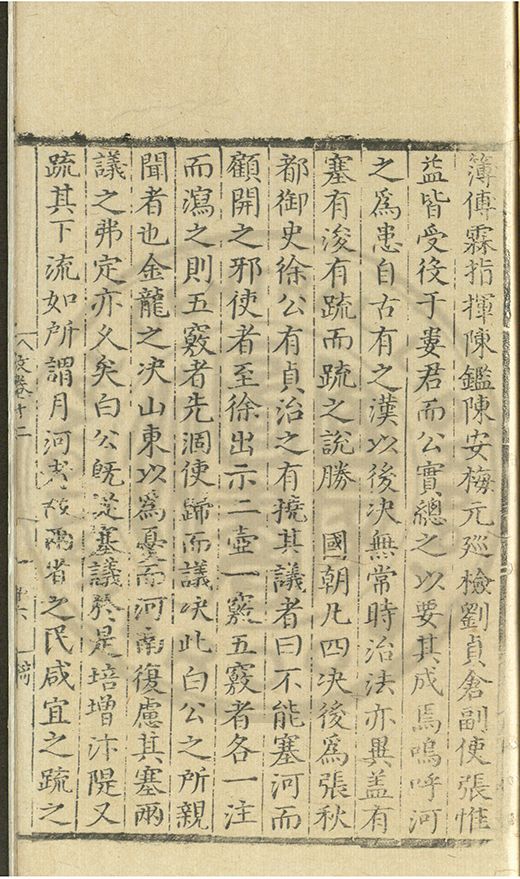 簿傅霖指揮陳鑑陳安梅元廵檢劉貞倉副使張惟
益皆受役于婁君而公實總之以要其成焉嗚呼河
之爲患自古有之漢以後决無常時治法亦異盖有
塞有浚有䟽而䟽之說勝 國朝凡四决後爲張秋
都御史徐公有貞治之有撓其議者曰不能塞河而
顧開之邪使者至徐出示二壺一竅五竅者各一注
而瀉之則五竅者先涸使歸而議决此白公之所親
聞者也金龍之决山東以爲憂而河南復慮其塞兩
議之弗定亦久矣白公旣從塞議於是培增汴隄又
䟽其下流如所謂月河者故兩省之民咸宜之䟽之